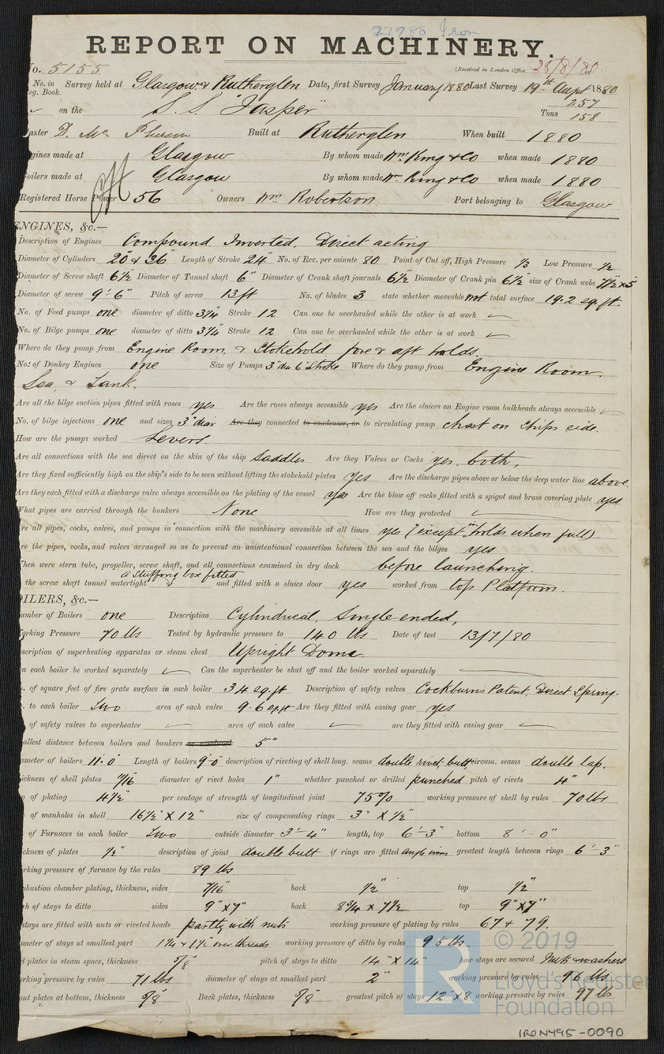 27780 Iron
REPORT ON MACHINERY.
No. 5155 (Received in London Office 25/8/80
No. in Survey held at Glasgow & Rutherglen Date, first Survey January 1880 Last Survey 19th Augt 1880
Reg. Book. 257
on the S.S. "Jasper" Tons 158
Master D. Mc Built at Rutherglen When built 1880
Engines made at Glasgow By whom made Wm King & Co when made 1880
Boilers made at Glasgow By whom made Wm King & Co when made 1880
Registered Horse Power 56 Owners Wm Robertson Port belonging to Glasgow
ENGINES, &c.—
Description of Engines Compound Inverted. Direct acting
Diameter of Cylinders 20" & 36" Length of Stroke 24" No. of Rev. per minute 80 Point of Cut off, High Pressure 1/3 Low Pressure 1/2
Diameter of Screw shaft 6 1/2 Diameter of Tunnel shaft 6" Diameter of Crank shaft journals 6 1/2 Diameter of Crank pin 6 1/2 size of Crank webs 7 1/2 x 5
Diameter of screw 9'-6" Pitch of screw 13 ft No. of blades 3 state whether moveable not total surface 19.2 sq. ft.
No. of Feed pumps one diameter of ditto 3 1/4 Stroke 12 Can one be overhauled while the other is at work
No. of Bilge pumps one diameter of ditto 3 1/4 Stroke 12 Can one be overhauled while the other is at work
Where do they pump from Engine Room. & Stokehold fore & aft holds.
No. of Donkey Engines one Size of Pumps 3" dia 6" stroke Where do they pump from Engine Room.
Sea & Tank.
Are all the bilge suction pipes fitted with roses yes Are the roses always accessible yes Are the sluices on Engine room bulkheads always accessible
No. of bilge injections one and sizes 3" diar Are they connected to condenser, or to circulating pump chest on ships side.
How are the pumps worked Levers.
Are all connections with the sea direct on the skin of the ship Saddles Are they Valves or Cocks yes. both.
Are they fixed sufficiently high on the ship's side to be seen without lifting the stokehold plates yes Are the discharge pipes above or below the deep water line above
Are they each fitted with a discharge valve always accessible on the plating of the vessel yes Are the blow off cocks fitted with a spigot and brass covering plate yes
What pipes are carried through the bunkers None How are they protected
Are all pipes, cocks, valves, and pumps in connection with the machinery accessible at all times yes (except "holds when full)
Are the pipes, cocks, and valves arranged so as to prevent an unintentional connection between the sea and the bilges yes
When were stern tube, propeller, screw shaft, and all connections examined in dry dock before launching.
a stuffing box fitted
the screw shaft tunnel watertight and fitted with a sluice door yes worked from top Platform.
BOILERS, &c.—
Number of Boilers one Description Cylindrical. Single ended.
Working Pressure 70 lbs Tested by hydraulic pressure to 140 lbs Date of test 13/7/80
Description of superheating apparatus or steam chest Upright Dome
Can each boiler be worked separately Can the superheater be shut off and the boiler worked separately
No. of square feet of fire grate surface in each boiler 34 sq. ft Description of safety valves Cockburns Patent, Direct Spring.
No. to each boiler Two area of each valve 9.6 sq ft Are they fitted with easing gear yes
No. of safety valves to superheater area of each valve are they fitted with easing gear
Smallest distance between boilers and bunkers 5"
Diameter of boilers 11.0 Length of boilers 9'0 description of riveting of shell long. seams double rivet butt circum. seams double lap.
Thickness of shell plates 11/16 diameter of rivet holes 1" whether punched or drilled punched pitch of rivets 4"
Lap of plating 4 1/2 per centage of strength of longitudinal joint 75% working pressure of shell by rules 70 lbs
Size of manholes in shell 16 1/2 x 12" size of compensating rings 3" x 1/2"
No. of Furnaces in each boiler Two outside diameter 3'-4" length, top 6'-3" bottom 8'-0"
Thickness of plates 1/2" description of joint double butt if rings are fitted angle iron greatest length between rings 6'-3"
Working pressure of furnace by the rules 89 lbs
Combustion chamber plating, thickness, sides 7/16" back 1/2" top 1/2"
Pitch of stays to ditto sides 9" x 7" back 8 3/4 x 7 1/2 top 9" x 7"
If stays are fitted with nuts or riveted heads partly with nuts working pressure of plating by rules 67 & 79.
Diameter of stays at smallest part 1 1/4 & 1 1/2 over threads working pressure of ditto by rules 95 lbs.
End plates in steam space, thickness 5/8" pitch of stays to ditto 14" x 14" how stays are secured Nuts & washers
Working pressure by rules 71 lbs diameter of stays at smallest part 2" working pressure by rules 96 lbs
Front plates at bottom, thickness 5/8" Back plates, thickness 5/8" greatest pitch of stays 12" x 8 working pressure by rules 97 lbs
© 2019
Lloyd's Register
Foundation
IRON495-0090